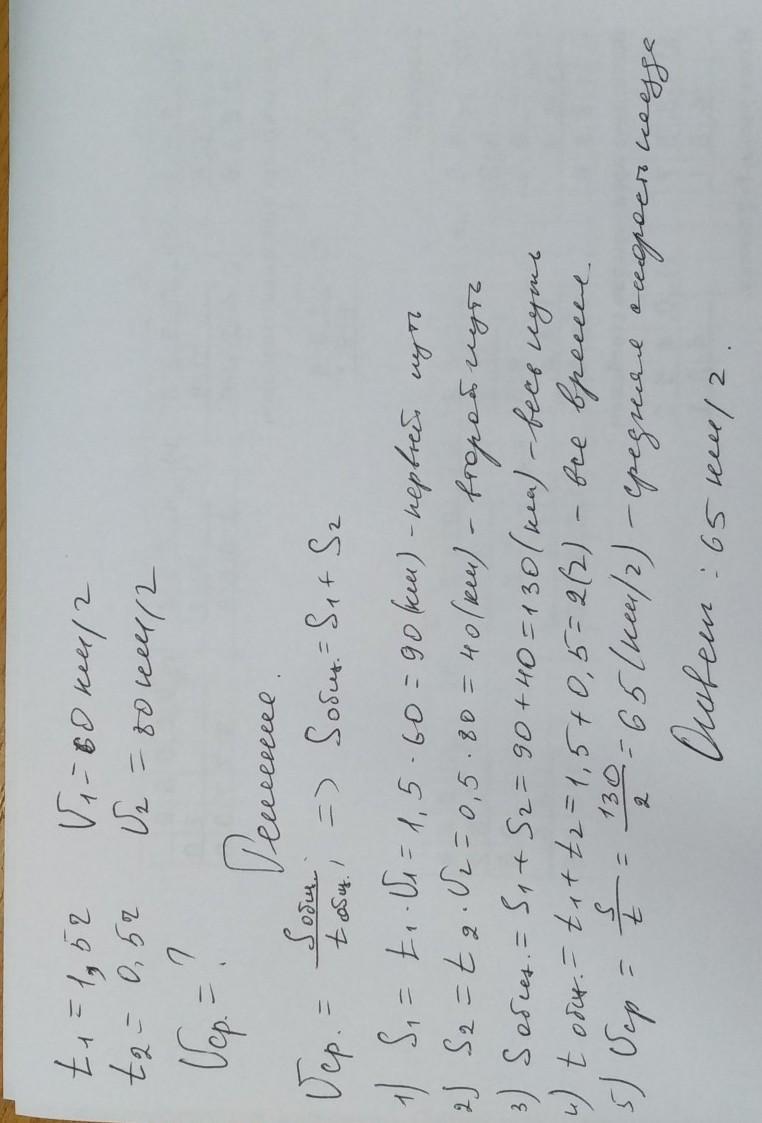 t₁ = 1,5ч V₁ = 60 км/ч
t₂ = 0,5ч V₂ = 80 км/ч
Vср. = ?
Решение.
Vср. = Sобщ. / tобщ., => Sобщ. = S₁ + S₂
1) S₁ = t₁ · V₁ = 1,5 · 60 = 90 (км) - первый путь
2) S₂ = t₂ · V₂ = 0,5 · 80 = 40 (км) - второй путь
3) Sобщ. = S₁ + S₂ = 90 + 40 = 130 (км) - весь путь
4) tобщ. = t₁ + t₂ = 1,5 + 0,5 = 2 (ч) - все время.
5) Vср = S / t = 130 / 2 = 65 (км/ч) - средняя скорость поезда
Ответ : 65 км/ч.